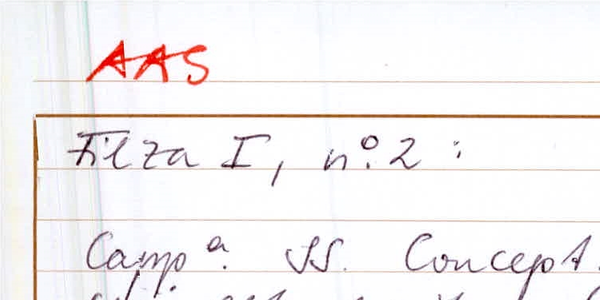 AAS
Filza I, nº. 2 :
Campª. SS. Concept.